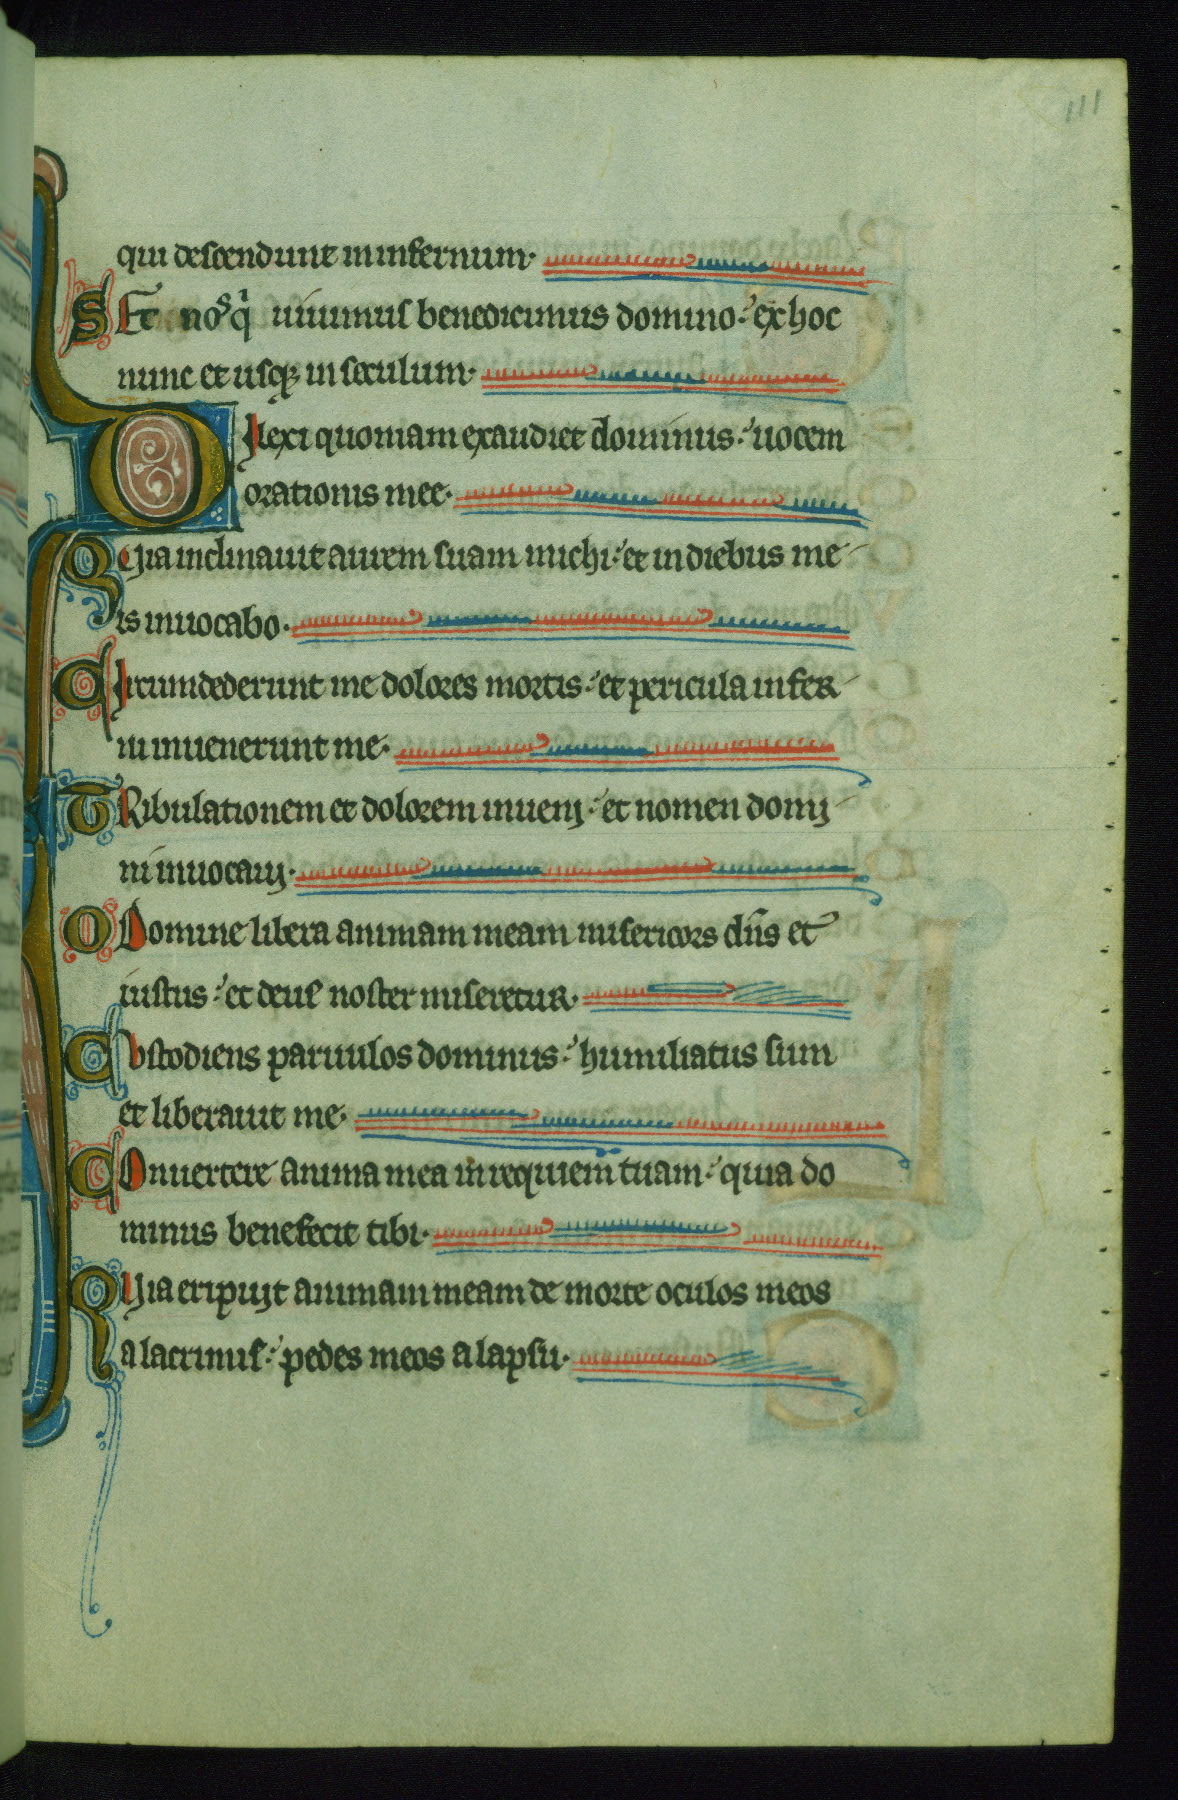 111
qui descendunt in infernum·
Set nos q̇ uiuimus benedicimus domino: ex hoc
nunc et usqꝫ in seculum·
Dilexi quoniam exaudiet dominus: uocem
orationis mee·
Quia inclinauit aurem suam michi: et in diebus me
is inuocabo·
Circumdederunt me dolores mortis: et pericula infer
ni inuenerunt me·
Tribulationem et dolorem inuenj: et nomen domj
ni inuocauj·
O Domine libera animam meam misericors dn̄s et
iustus: et deus noster miseretur·
Custodiens paruulos dominus: humiliatus sum
et liberauit me·
Conuertere anima mea in requiem tuam: quia do
minus benefecit tibi·
Quia eripujt animam meam de morte oculos meos
a lacrimis: pedes meos a lapsu·